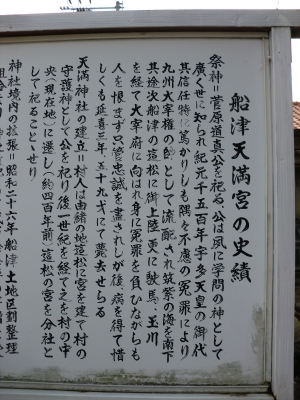 船津天満宮の史績
祭神=菅原道真公を祀る、公は夙に学問の神として
廣く世に知られ紀元千五百年宇多天皇の御代
其信任特に篤かりしも隅々不慮の冤罪により
九州大宰権の師として流配され筑紫の海を南下
其途次船津の這松に御上陸更に駿馬、玉川
を経て大宰府に向はれ身に冤罪を負ひながらも
人を恨まず只管忠誠を盡されしが後、病を得て惜
しくも延喜三年、五十九才にて薨去せらる
天満神社の建立=村人は由緒の地這松に宮を建て村の
守護神として公を祀り後一世紀を経て之を村の中
央(現在地)に遷し(約四百年前)這松の宮を分社と
して祀ることゝせり
神社境内の拡張=昭和二十六年船津土地区劃整理